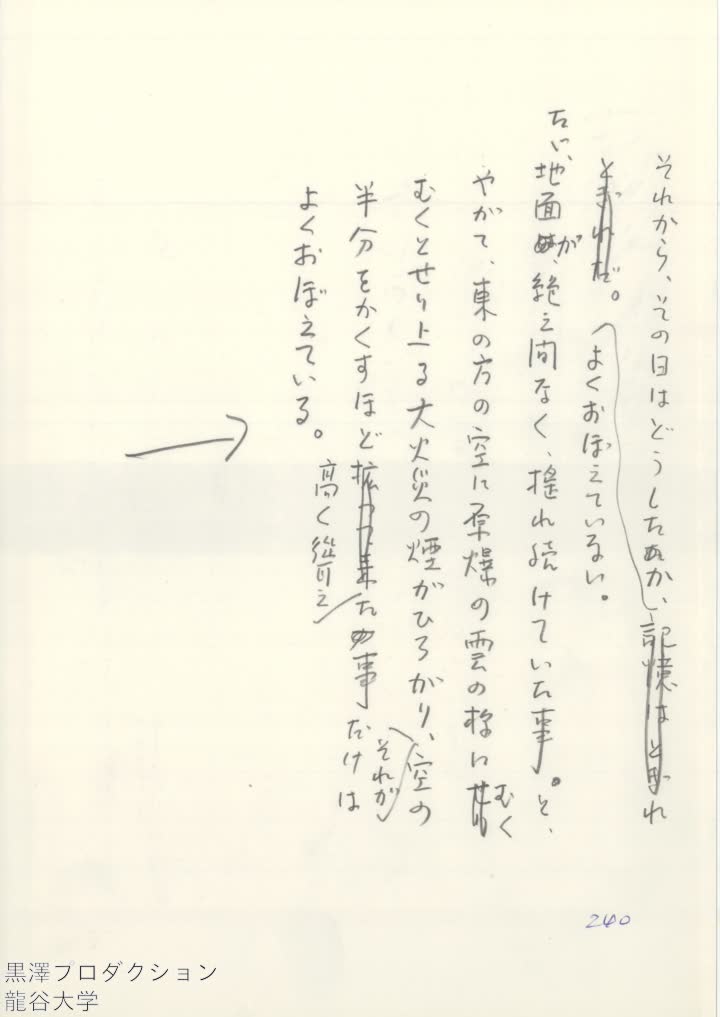 それから、その日はどうしたか、記憶はとぎれ
とぎれだ。よくおぼえているない。
たゞ、地面が、絶え間なく、揺れ続けていた事。と、
やがて、東の方の空に原爆の雲の様にむく
むくとせり上る大火災の煙がひろがり、それが空の
半分をかくすほど高く聳えた事だけは
よくおぼえている。
240
黒澤プロダクション
龍谷大学